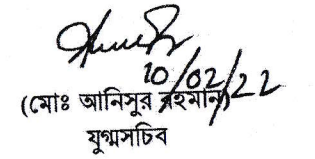 10/02/22
(মোঃ আনিসুর রহমান)
যুগ্মসচিব